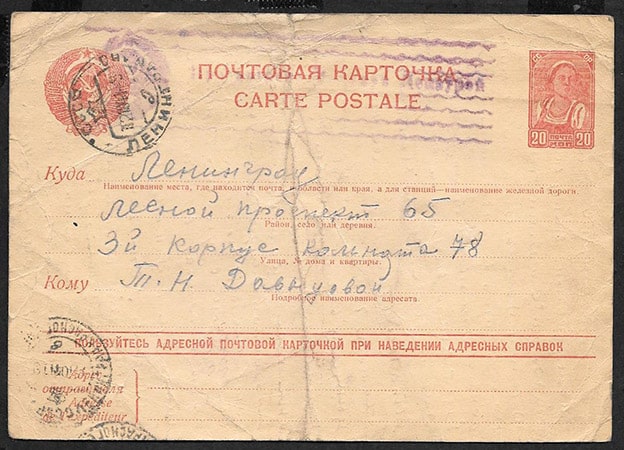 ПОЧТОВАЯ КАРТОЧКА
CARTE POSTALE
СССР
20 ПОЧТА 20
КОП
ЛЕНИНГРАД
Куда Ленинград
Наименование места, где находится почта, и области или края, а для станций—наименование железной дороги
Лесной проспект 65
Район, село или деревня.
3й корпус комната 78
Улица, № дома и квартиры.
Кому Т. Н. Давыдовой
Подробное наименование адресата.
ПОЛЬЗУЙТЕСЬ АДРЕСНОЙ ПОЧТОВОЙ КАРТОЧКОЙ ПРИ НАВЕДЕНИИ АДРЕСНЫХ СПРАВОК
Адрес
отправителя
Adresse
de l'expéditeur